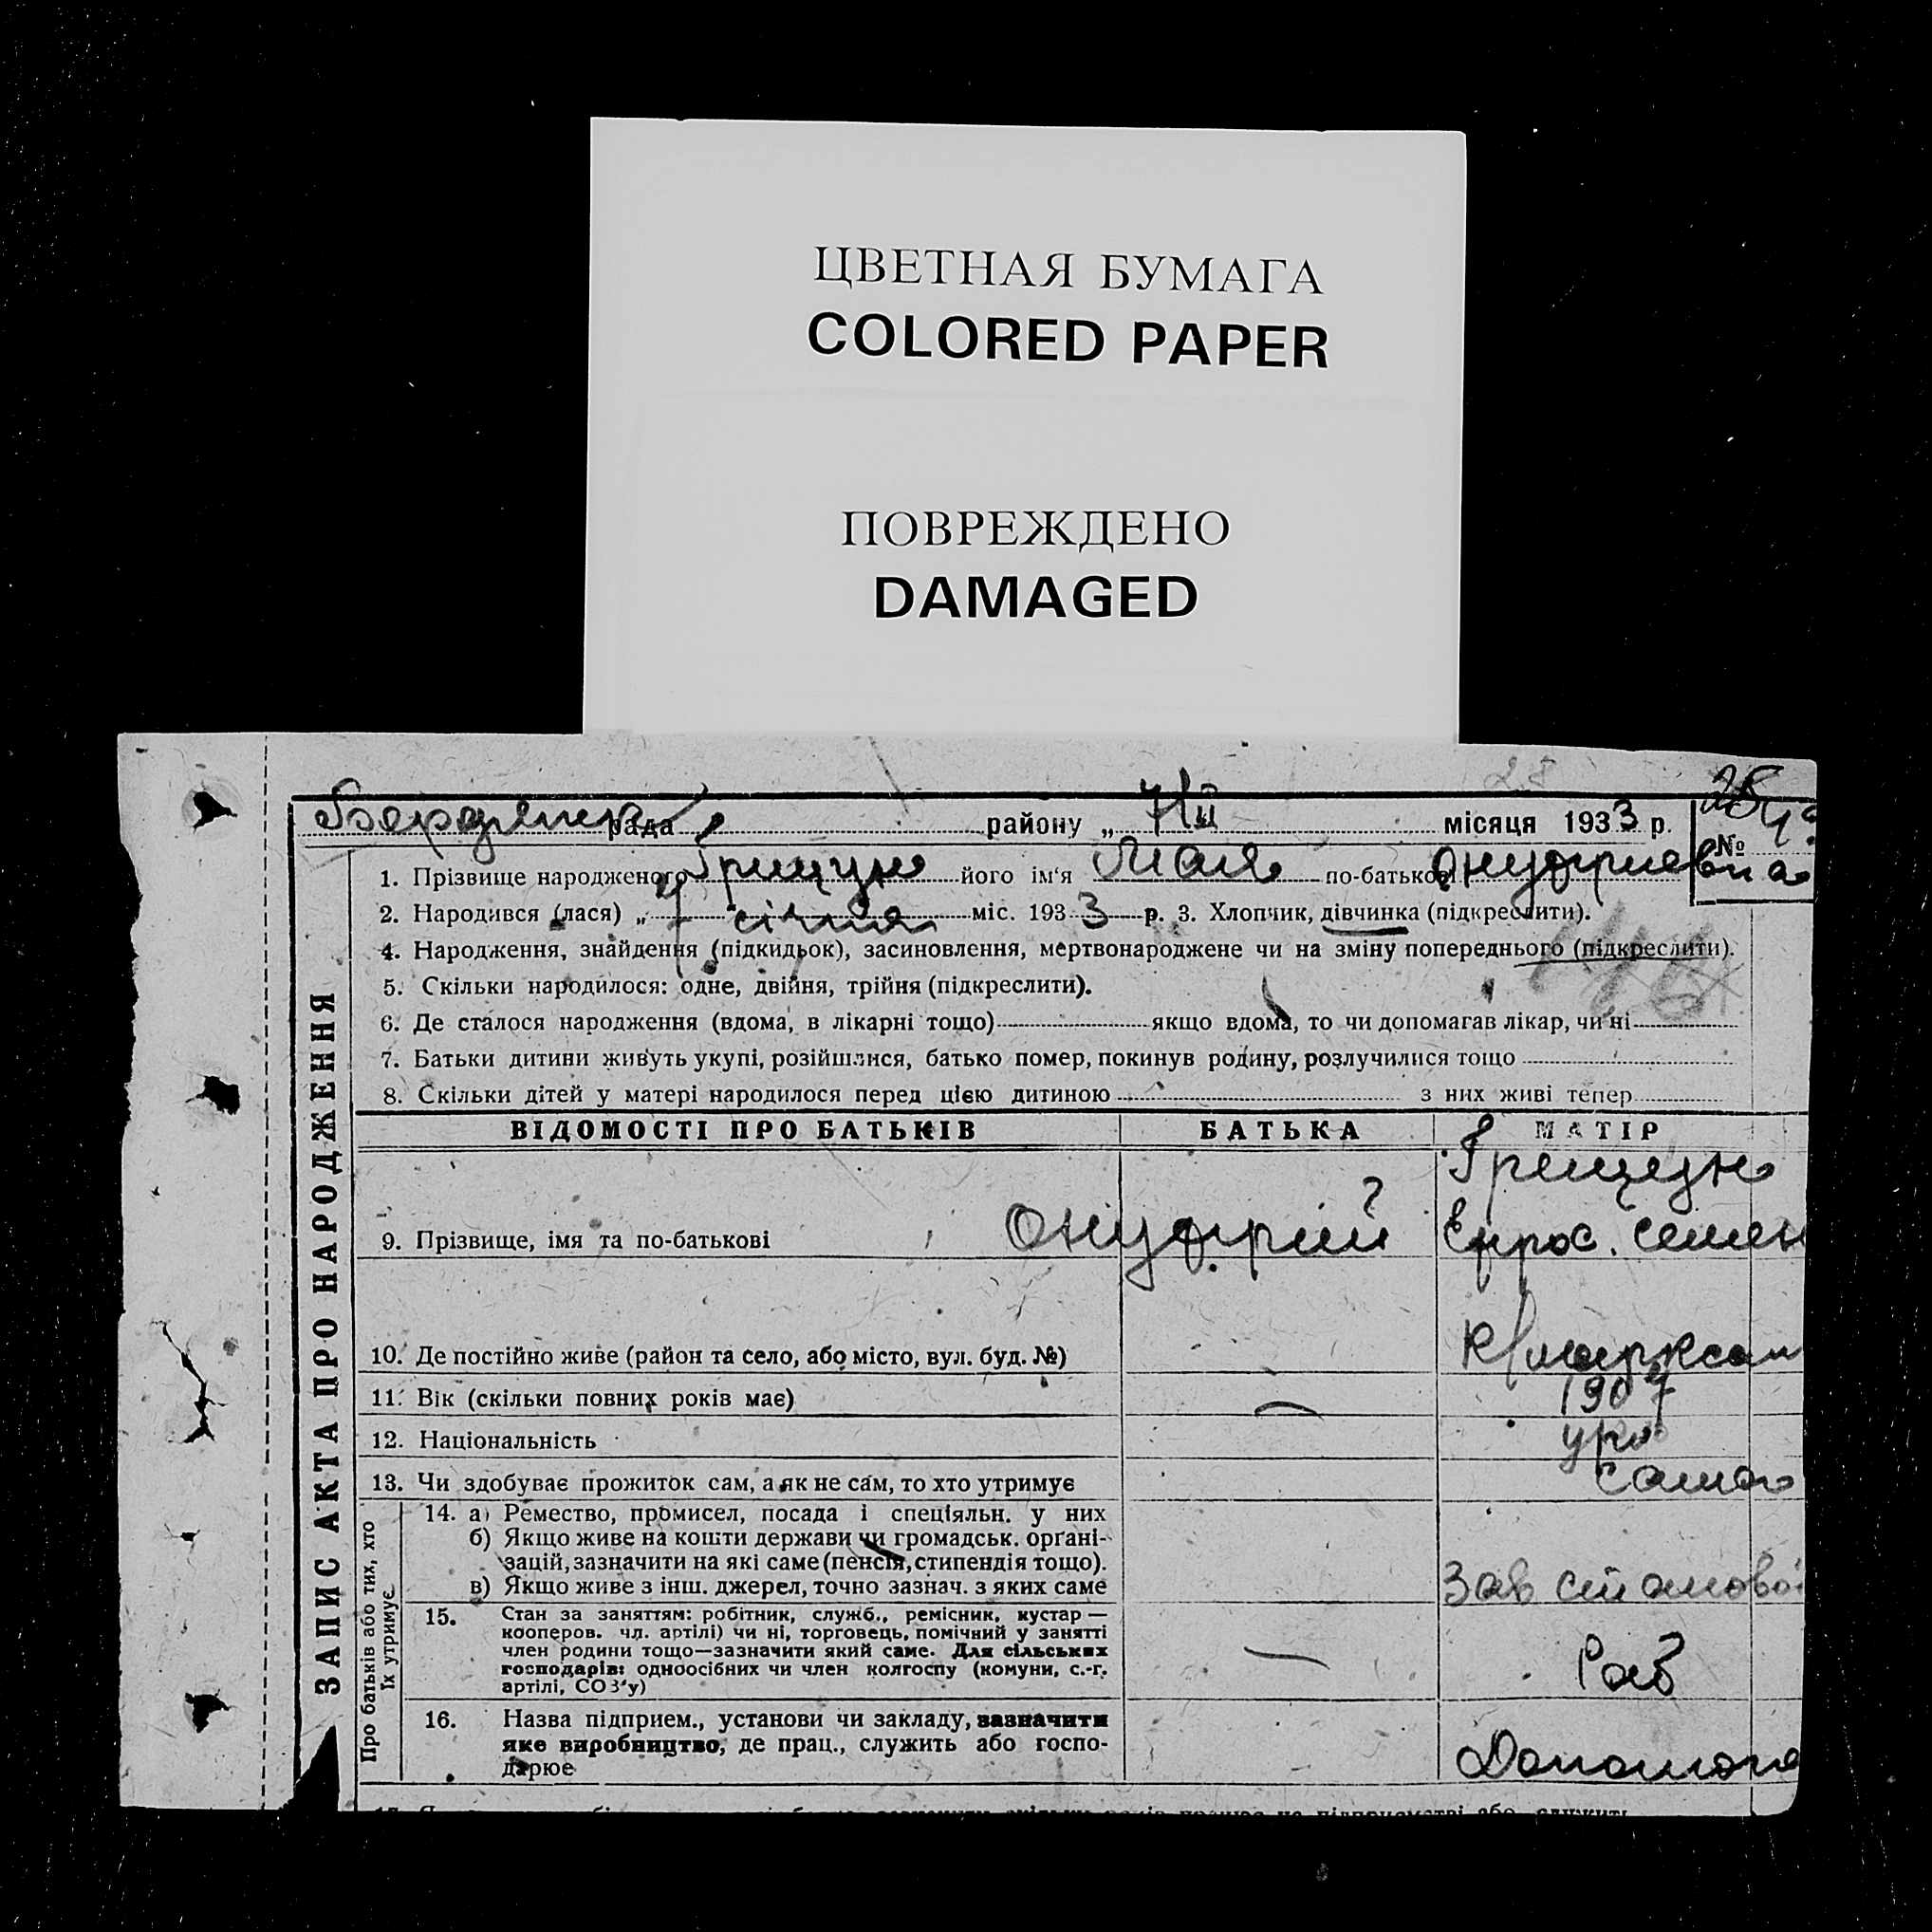 ЦВЕТНАЯ БУМАГА
COLORED PAPER
ПОВРЕЖДЕНО
DAMAGED
28
Бердянск рада района „ 7/II місяця 1933 р. №
1. Прізвище народженого Грищун його ім‘я Мая по-батькові Онуфриевна
2. Народився (лася) „ 7 січня міс. 1933 р. 3. Хлопчик, дівчинка (підкреслити).
4. Народження, знайдення (підкидьок), засиновлення, мертвонароджене чи на зміну попереднього (підкреслити).
5. Скільки народилося: одне, двійня, трійня (підкреслити).
6. Де сталося народження (вдома, в лікарні тощо) якщо вдома, то чи допомагав лікар, чи ні
7. Батьки дитини живуть укупі, розійшлися, батько помер, покинув родину, розлучилися тощо
8. Скільки дітей у матері народилося перед цією дитиною з них живі тепер
ЗАПИС АКТА ПРО НАРОДЖЕННЯ
ВІДОМОСТІ ПРО БАТЬКІВ БАТЬКА МАТІР
Грищун
9. Прізвище, імя та по-батькові Онуфрий Ефрос. Семен
10. Де постійно живе (район та село, або місто, вул. буд. №)
11. Вік (скільки повних років має) — 1907
12. Національність укр
13. Чи здобуває прожиток сам, а як не сам, то хто утримує сама
Про батьків або тих, хто їх утримує.
14. а) Ремество, промисел, посада і спеціяльн. у них
б) Якщо живе на кошти держави чи громадськ. орґані-
зацій, зазначити на які саме (пенсія, стипендія тощо).
в) Якщо живе з інш. джерел, точно зазнач. з яких саме Зав столовой
15. Стан за заняттям: робітник, служб., ремісник, кустар —
кооперов. чл. артілі) чи ні, торговець, помічний у занятті
член родини тощо—зазначити який саме. Для сільських
господарів: одноосібних чи член колгоспу (комуни, с.-г. — Раб
артілі, СОЗ‘у)
16. Назва підприєм., установи чи закладу, зазначити
яке виробництво, де прац., служить або госпо-
дарює Допомога